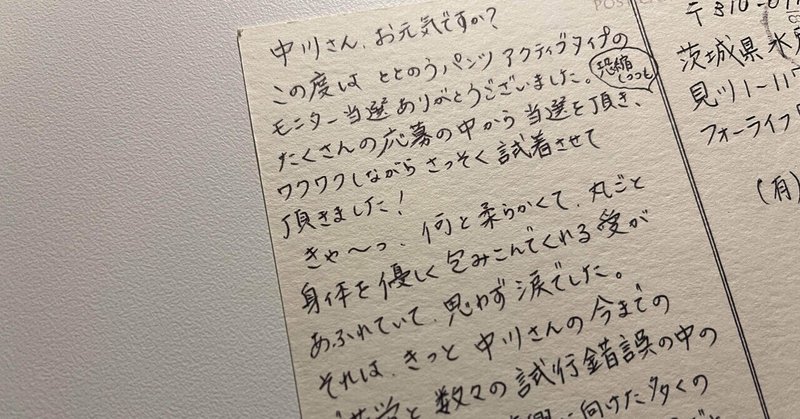 中川さん、お元気ですか?
この度は ととのうパンツ アクティブタイプの
モニター当選ありがとうございました。
恐縮しつつも
たくさんの応募の中から当選を頂き、
ワクワクしながら さっそく試着させて
頂きました!
きゃ〜っ、何と柔らかくて、丸ごと
身体を優しく包みこんでくれる愛が
あふれていて、思わず涙でした。
それは、きっと 中川さんの今までの
と数々の試行錯誤の中の
に向けた多くの
POST
〒310-
茨城県水戸
見川1-11
フォーライフ
(有)